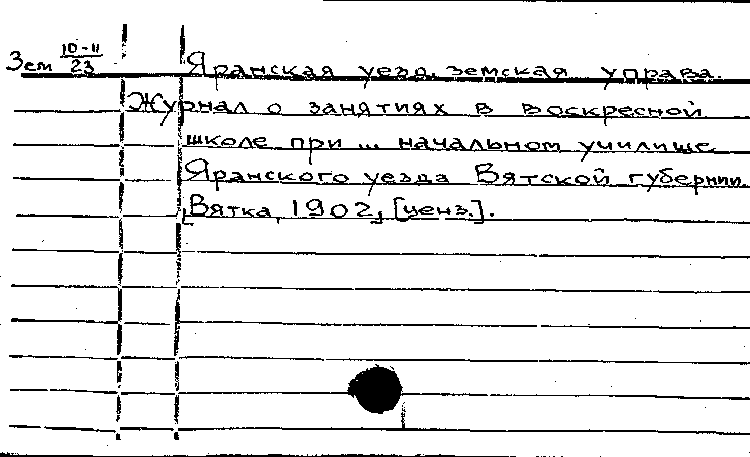 Зем 10-11/23 Яранская уезд. земская управа.
Журнал о занятиях в воскресной
школе при ... начальном училище
Яранского уезда Вятской губернии.
[Вятка, 1902], [ценз.].